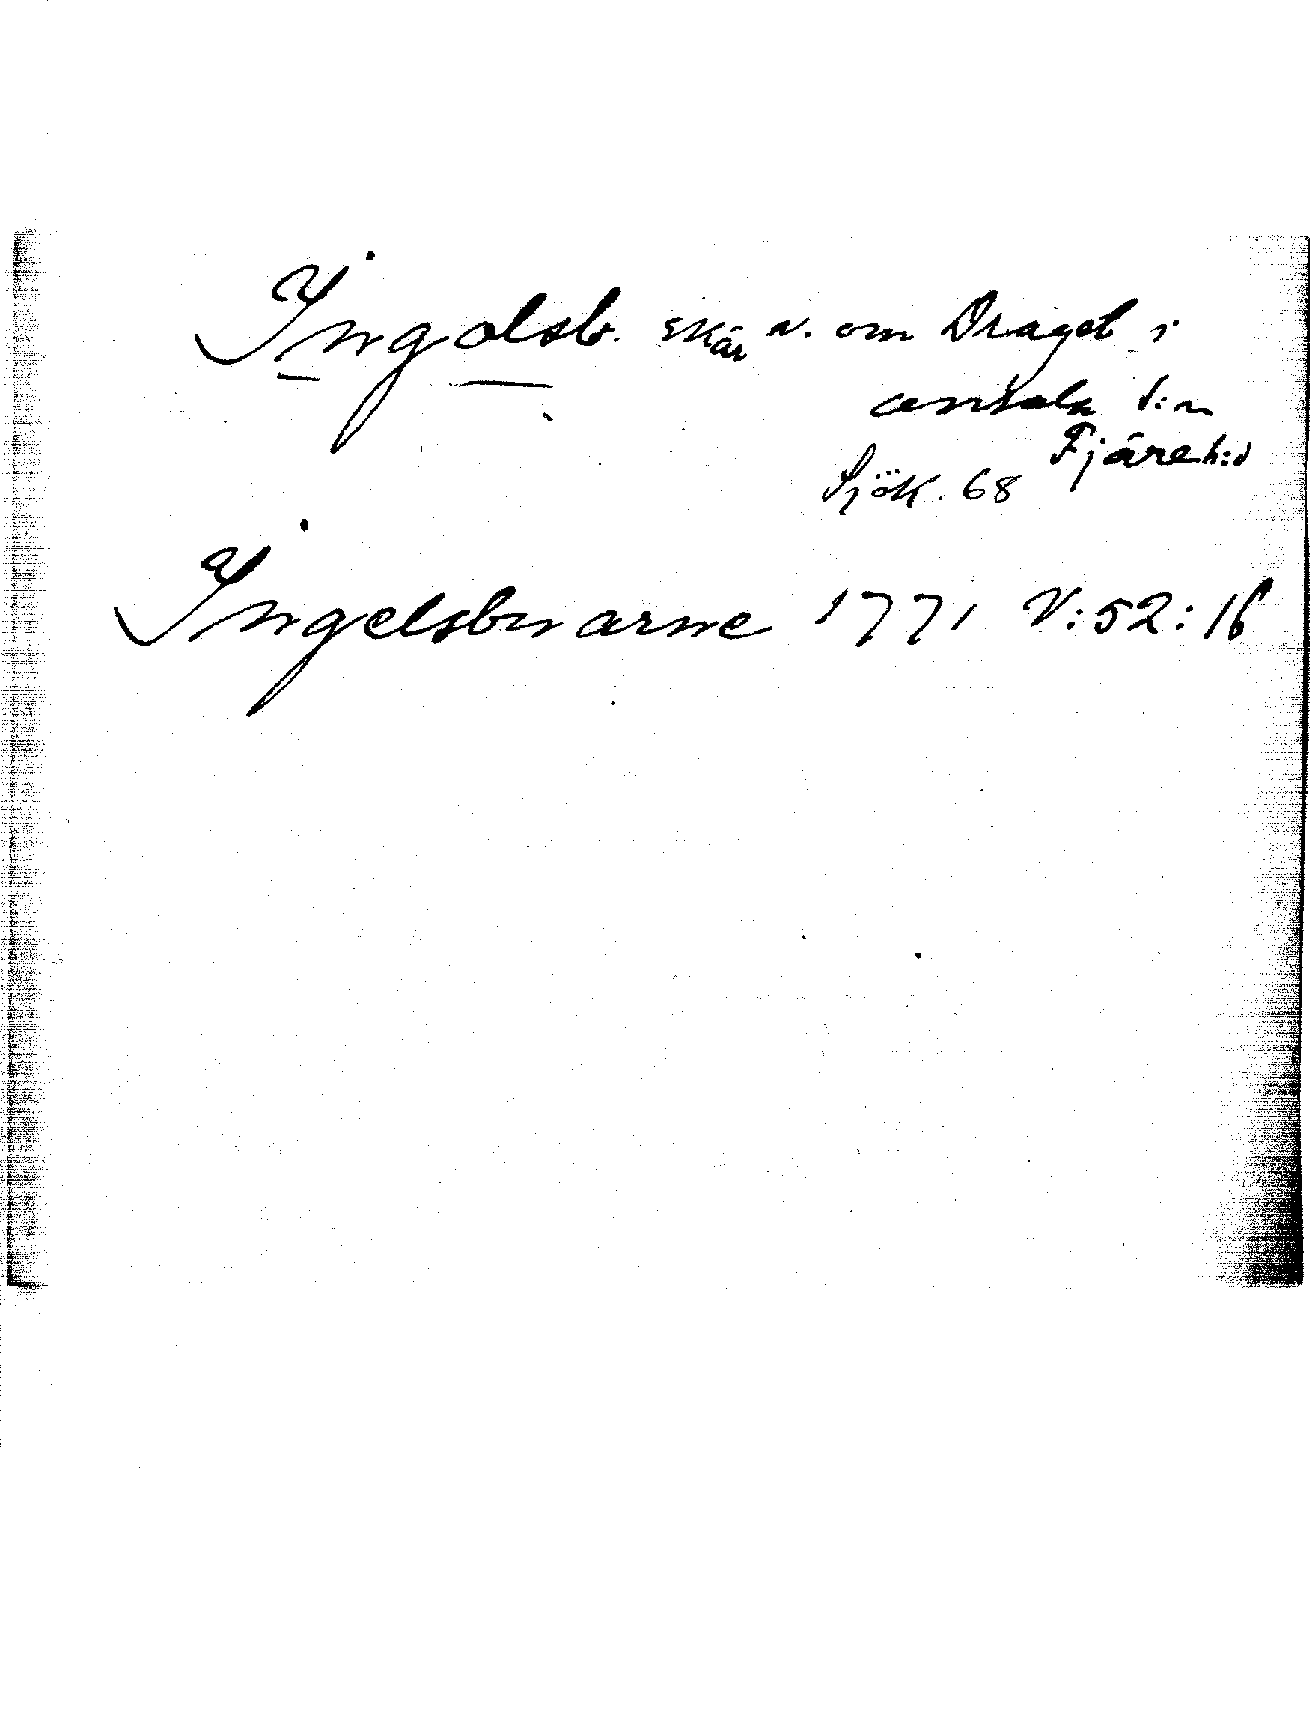 Ingolsb. skär n. om Draget i
Onsala s:n
Fjäre h:d
Sjök. 68
Ingelsbuarne 1771 V:52:16